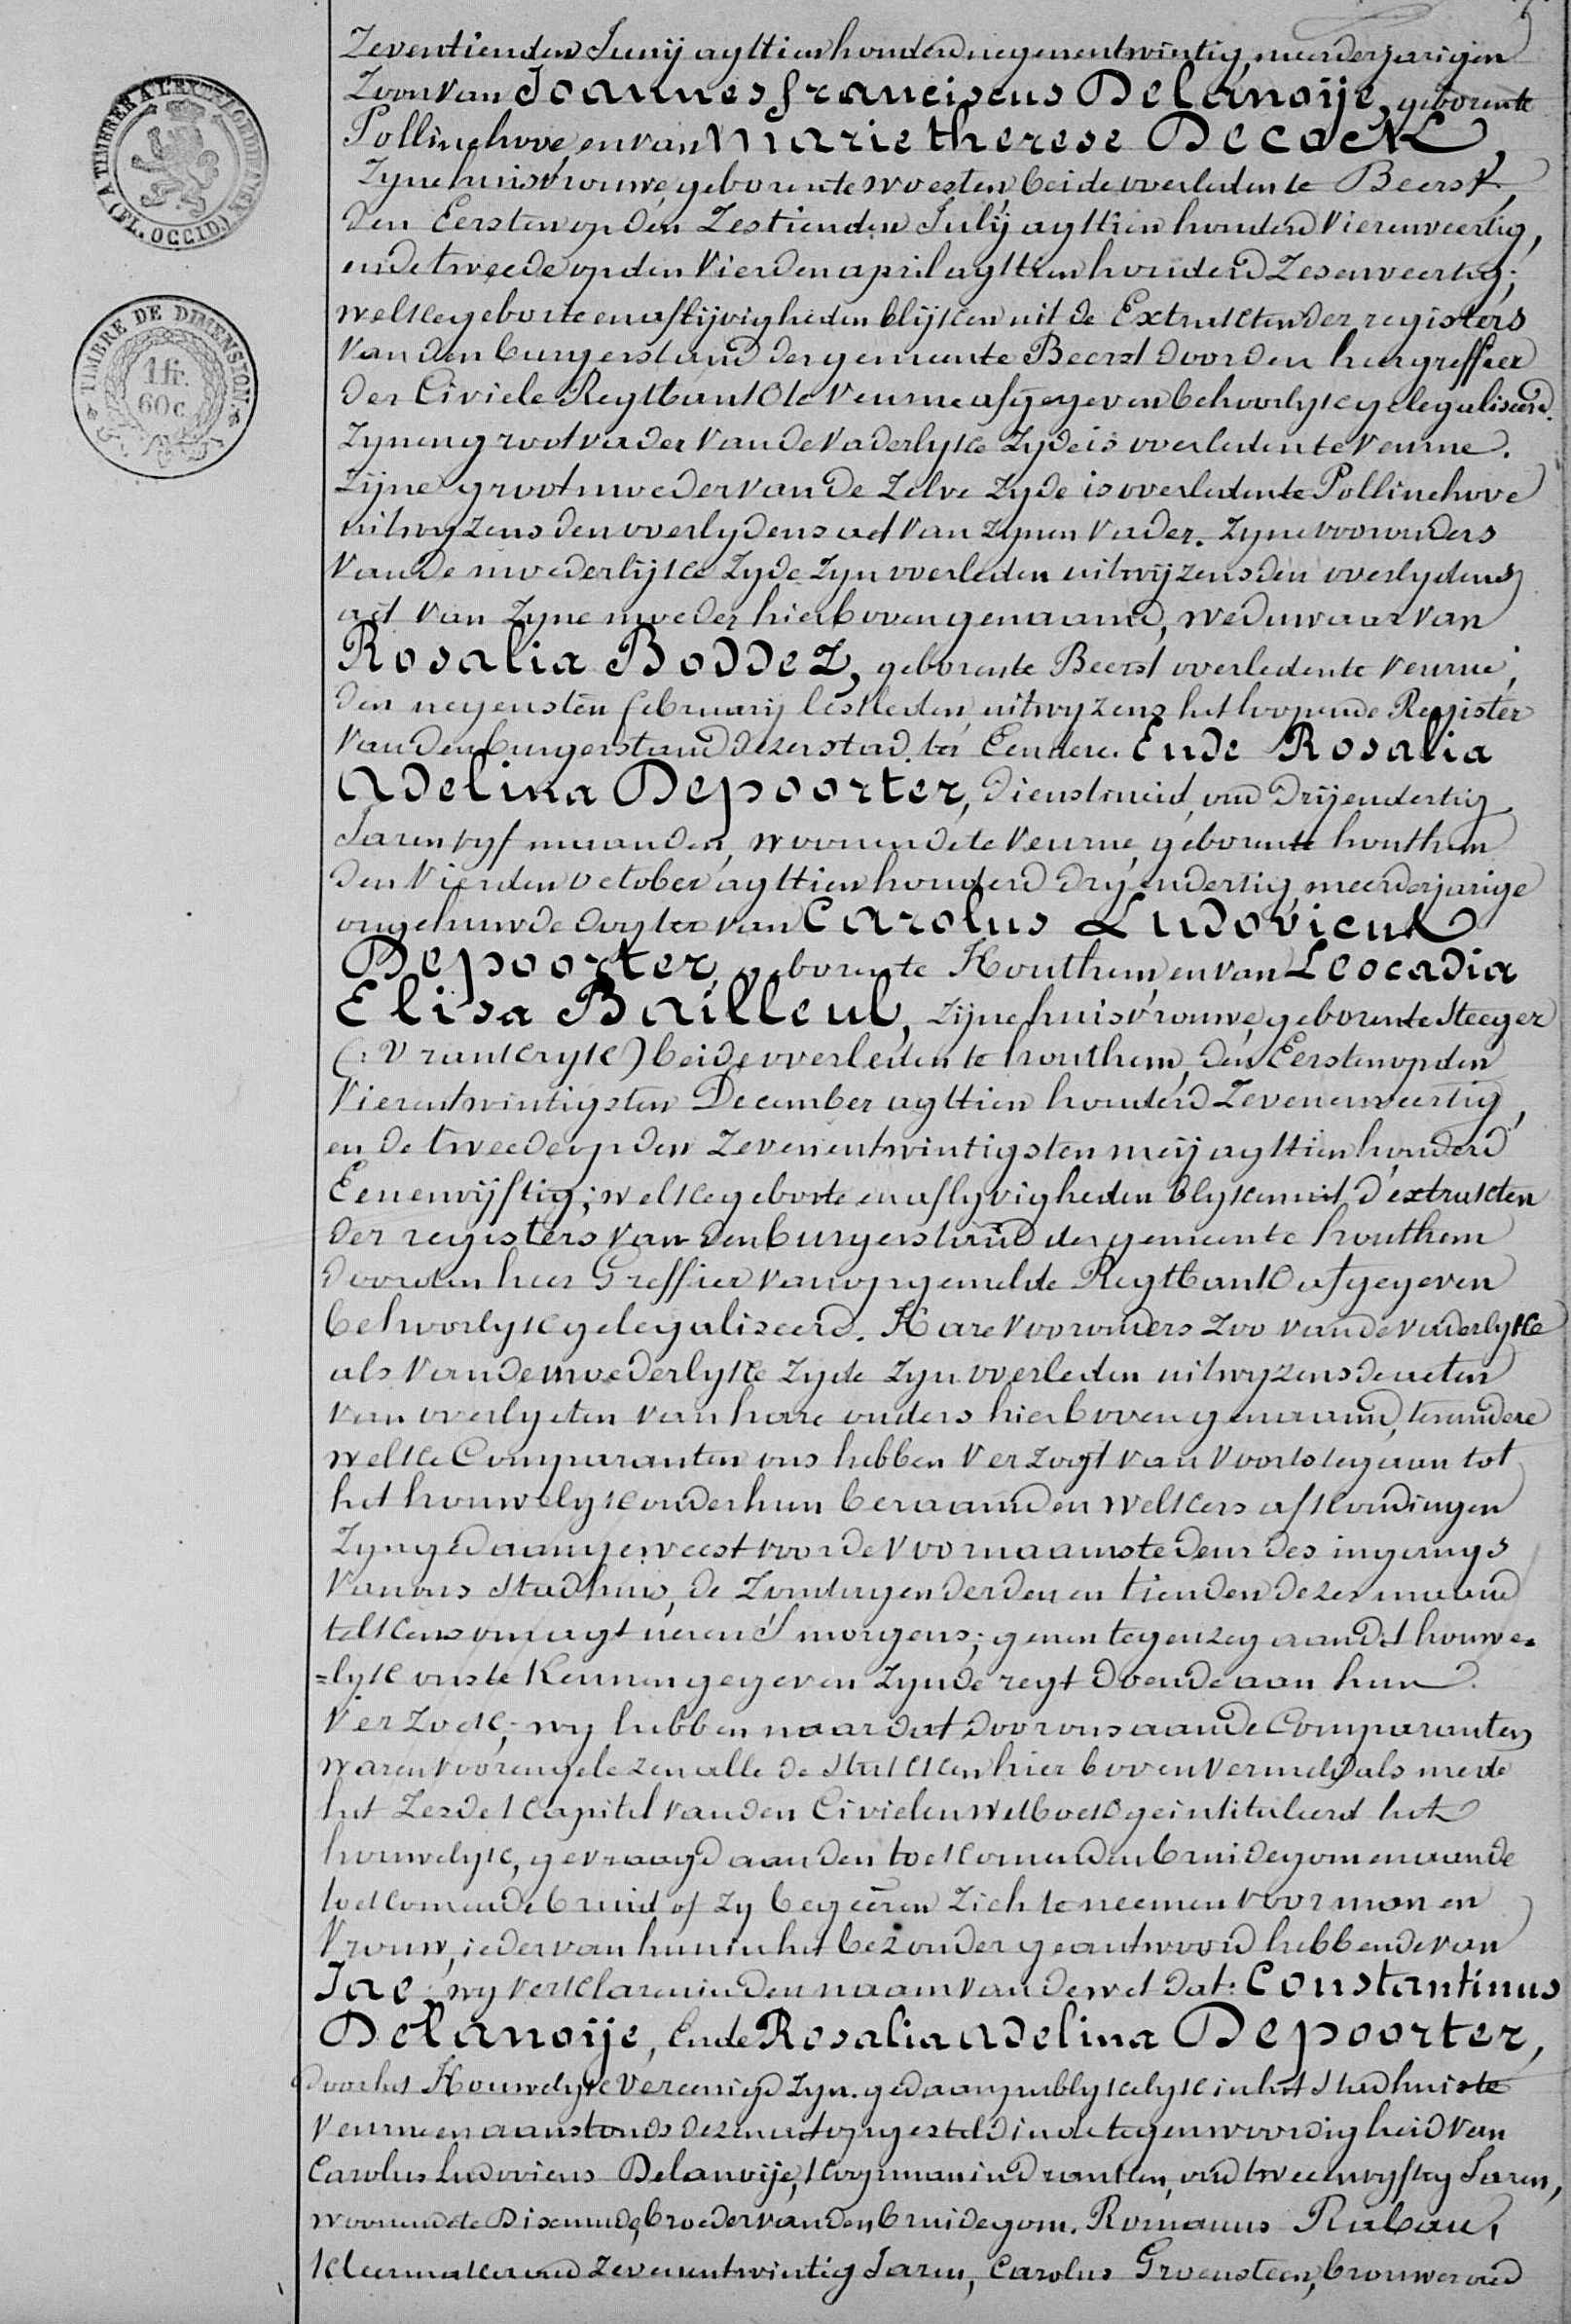 A TIMBRER A L'EXTRAORDINAIRE (FL. OCCID)
TIMBRE DE DIMENSION
1 fr.
60 c.
Zeventienden Junij agttien honderd negenentwintig, meerderjarigen
Zoon van Joannes franciscus Delanoije, geboren te
Pollinchove, en van Marie therese Decock,
Zyne huisvrouwe, geboren te Woesten, beide overleden te Beerst,
den Eersten op den Zestienden Julij agttien honderd Vierenveertig,
en de tweede op den Vierden april agttien honderd Zesenveertig;
welke geborte en aflijvigheden blijken uit de Extrakten der registers
van den burgerstand der gemeente Beerst door den heer greffier
der Civiele Regtbank te Veurne afgegeven behoorlyk gelegaliseerd.
Zynen grootvader van de vaderlyke zyde is overleden te Veurne.
Zijne grootmoeder van de zelve zyde is overleden te Pollinchove
uitwyzens den overlydens act van zynen vader. Zyne voorouders
van de moederlijke zyde zyn overleden uitwijzens den overlydens
act van zyne moeder hierboven genaamd, weduwaar van
Rosalia Boddez, geboren te Beerst overleden te Veurne,
den negensten februarij lestleden, uitwyzens het loopende Register
van den burgerstand dezer stad. ter Eendere. Ende Rosalia
Adelina Depoorter, dienstmeid, oud drijendertig
Jaren vyf maanden, woonende te Veurne, geboren te houthem
den Vierden october agttien honderd dryendertig, meerderjarige
ongehuwde dogter van Carolus Ludovicus
Depoorter, geboren te Houthem, en van Leocadia
Elisa Bailleul, zijne huisvrouwe, geboren te Steeger
(: Vrankryk) beide overleden te houthem, den Eersten op den
Vierentwintigsten December agttien honderd Zevenenveertig,
en de tweede op den Zevenentwintigsten meij agttien honderd
Eenenvijftig; welke geborte en aflyvigheden blyken uit d'extrakten
der registers van den burgerstand der gemeente houthem
door den heer Greffier van opgemelde Regtbank afgegeven
behoorlyk gelegaliseerd. Hare voorouders zoo van de vaderlyke
als van de moederlyke zyde zyn overleden uitwyzens de acten
van overlyden van hare ouders hierboven genaamd, ter andere
welke Comparanten ons hebben verzogt van voorts tegaan tot
het houwelyk onder hun beraamd en welkers afkondingen
zyn gedaan geweest voor de voornaamste deur des ingangs
van ons stadhuis, de Zondagen derden en tienden dezer maand
telkens om agt uren 's morgens; geenen tegenzeg aan dit houwe-
=lyk ons te kennen gegeven zynde regt doende aan hun
Verzoek; wy hebben naar dat door ons aan de Comparanten
waren voorengelezen alle de stukken hier boven vermeld als mede
het Zesde kapitel van den Civielen wetboek geintituleerd het
houwelyk, gevraagd aan den toekomenden bruidegom en aan de
toekomende bruid of zy begeeren zich te neemen voor man en
Vrouw, ieder van hun in het bezonder geantwoord hebbende van
Jae: wy verklaren in den naam van de wet dat: Constantinus
Delanoije, Ende Rosalia Adelina Depoorter,
door het Houwelyk Vereenigd zyn. gedaan publykelyk in het stadhuis te
Veurne en aanstonds dezen act opgesteld in de tegenwoordigheid van
Carolus Ludovicus Delanoije, koopman in dranken, oud tweeenvyftig Jaren,
woonende te Dixmude, broeder van den bruidegom. Romanus Rabau,
kleermaker oud zevenentwintig Jaren, Carolus Groensteen, brouwer oud